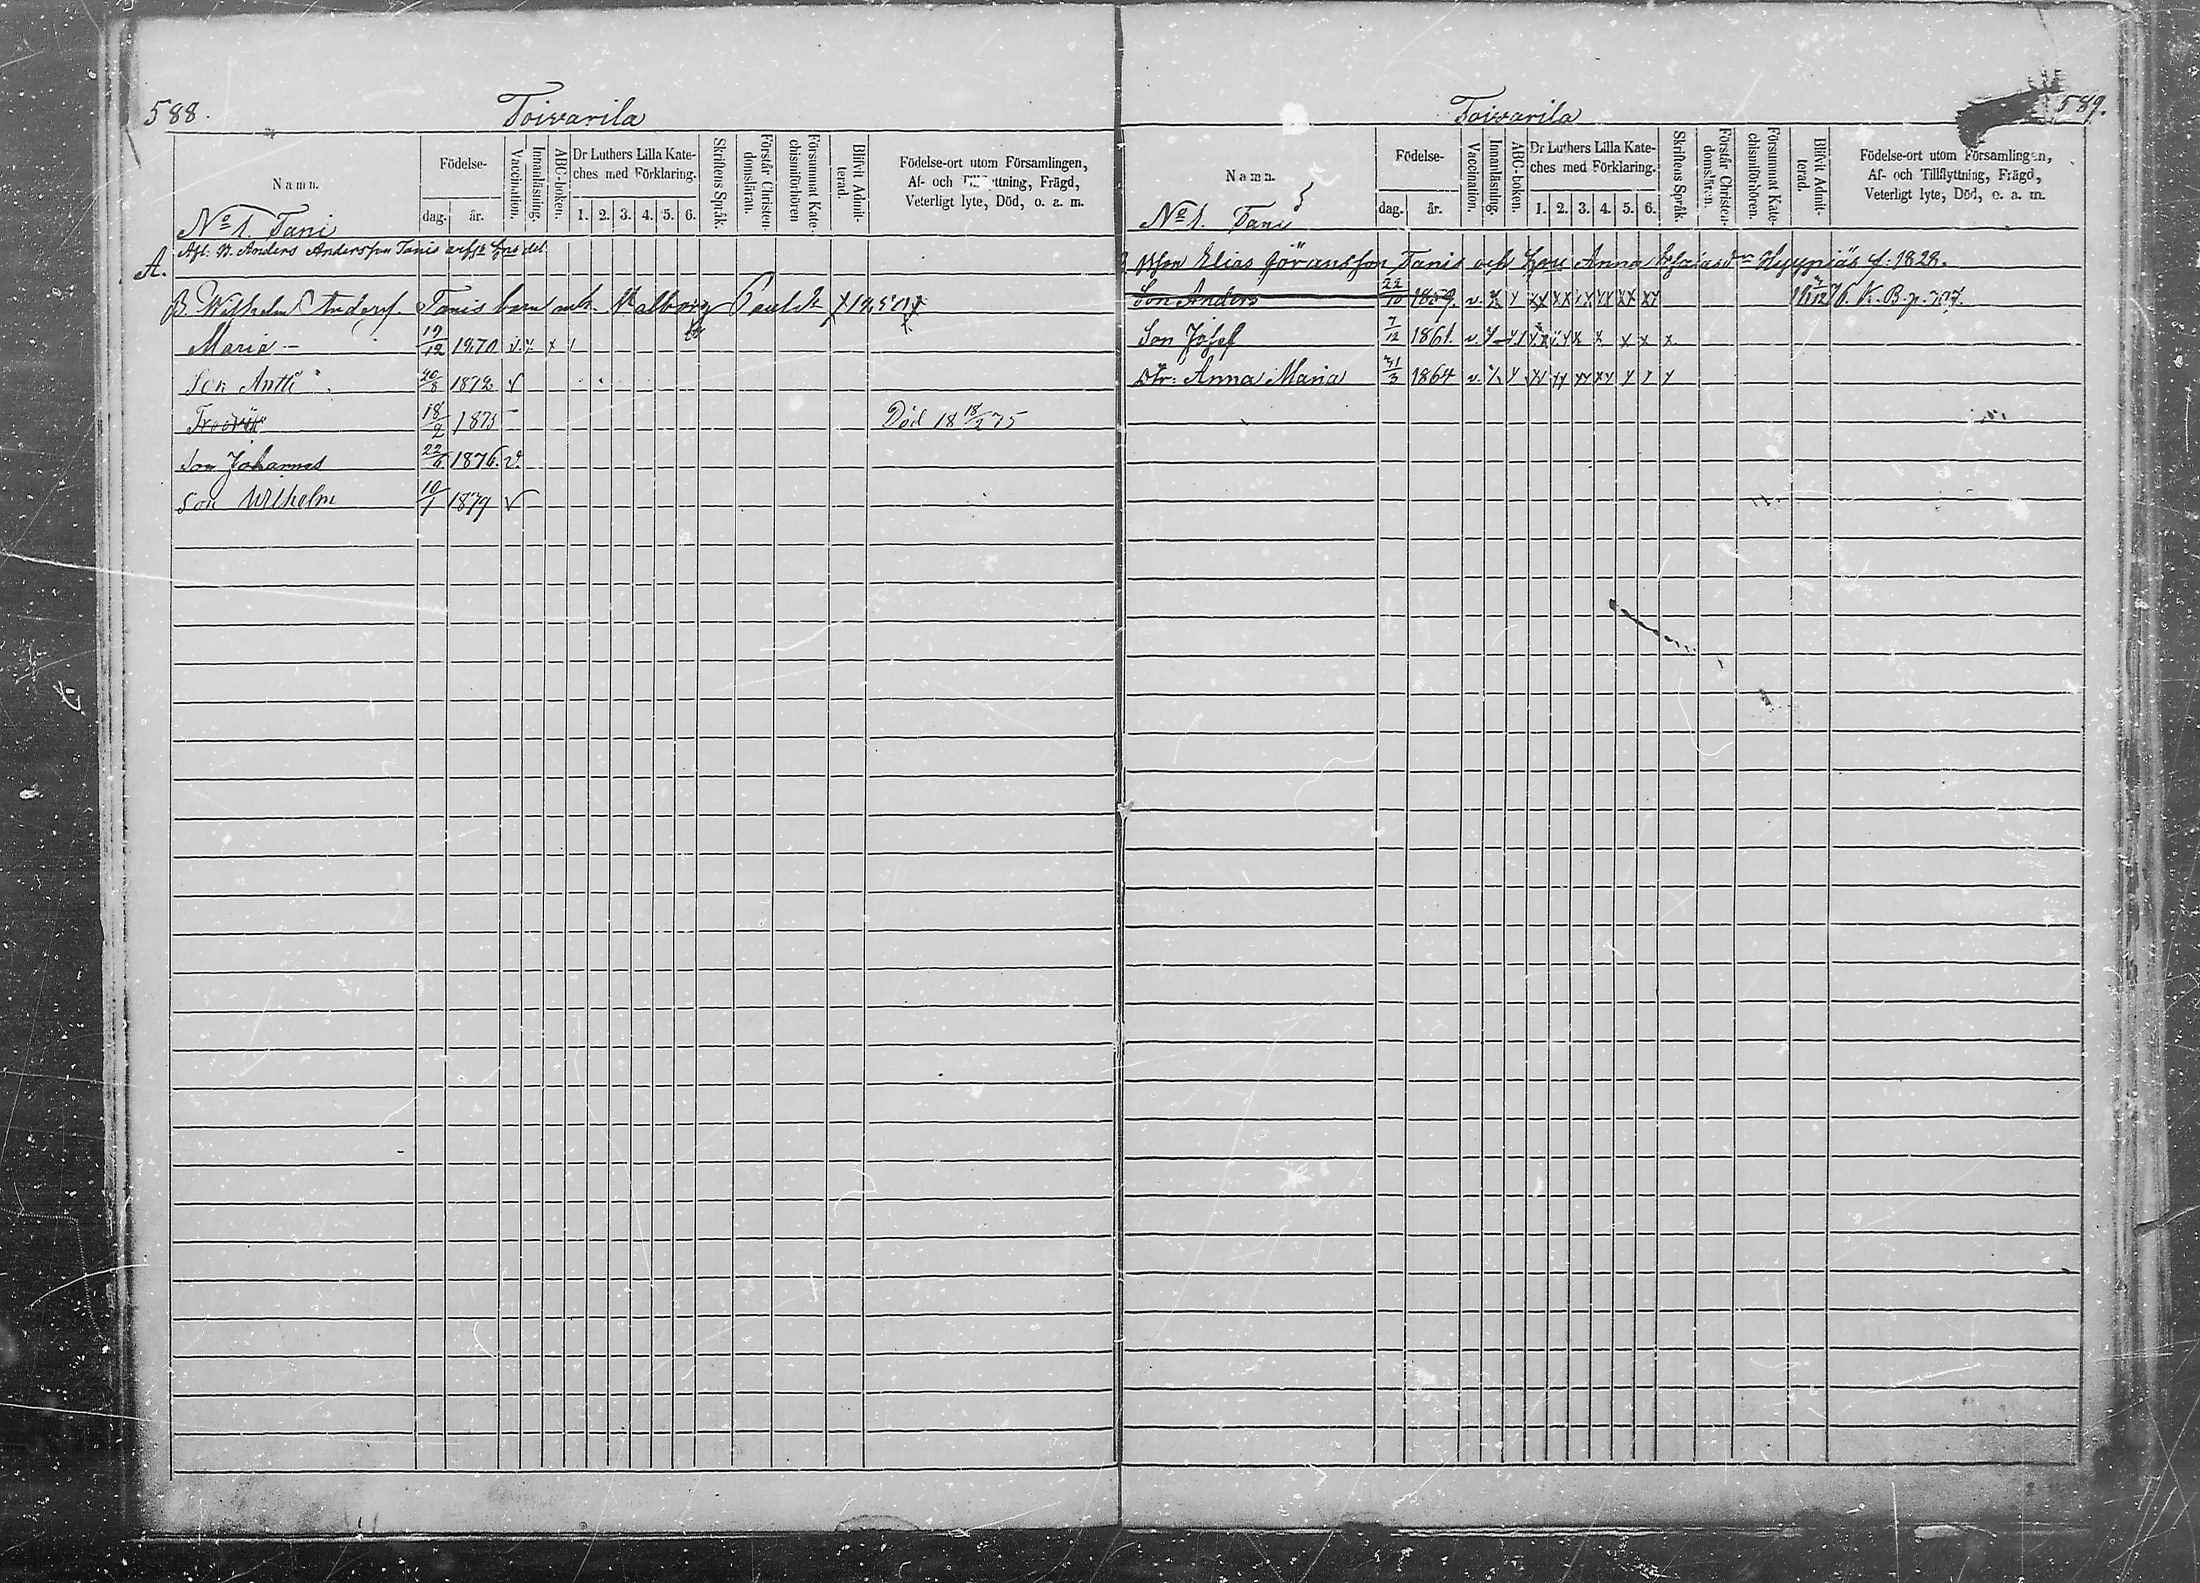 588.
Toivarila
Namn.
Födelse-
dag. år.
Vaccination.
Innanläsning.
ABC-boken.
Dr Luthers Lilla Kate-
ches med Förklaring.
1. 2. 3. 4. 5. 6.
Skriftens Språk.
Förstår Christen-
domsläran.
Försummat Kate-
chismiförhören
Blifvit Admit-
terad.
Födelse-ort utom Församlingen,
Af- och Tillflyttning, Frägd,
Veterligt lyte, Död, o. a. m.
No 1. Tani
A. Afl. B. Anders Andersson Tanis
B. Wilhelm Anderss. Tanis barn med Walborg
Maria 19/12 1870 v. x x
Son Antti 20/8 1872 v
18/2 1875 Död 18 18/2 75
Son Johannes 22/6 1876. v.
Son Wilhelm 10/1 1879 v
589.
Toivarila
Namn.
Födelse-
dag. år.
Vaccination.
Innanläsning.
ABC-boken.
Dr Luthers Lilla Kate-
ches med Förklaring.
1. 2. 3. 4. 5. 6.
Skriftens Språk.
Förstår Christen-
domsläran.
Försummat Kate-
chismiförhören.
Blifvit Admit-
terad.
Födelse-ort utom Församlingen,
Af- och Tillflyttning, Frägd,
Veterligt lyte, Död, o. a. m.
No 1. Tani
Elias Göransson Tanis och Anna Hyypiäs f. 1828.
Son Anders 22/10 1859. v. x x xx xx xx xx xx xx K. B. p. 707.
Son Josef 7/12 1861. v. x x x x x
Dtr. Anna Maria 31/3 1864 v. x x xx xx xx xx x x x